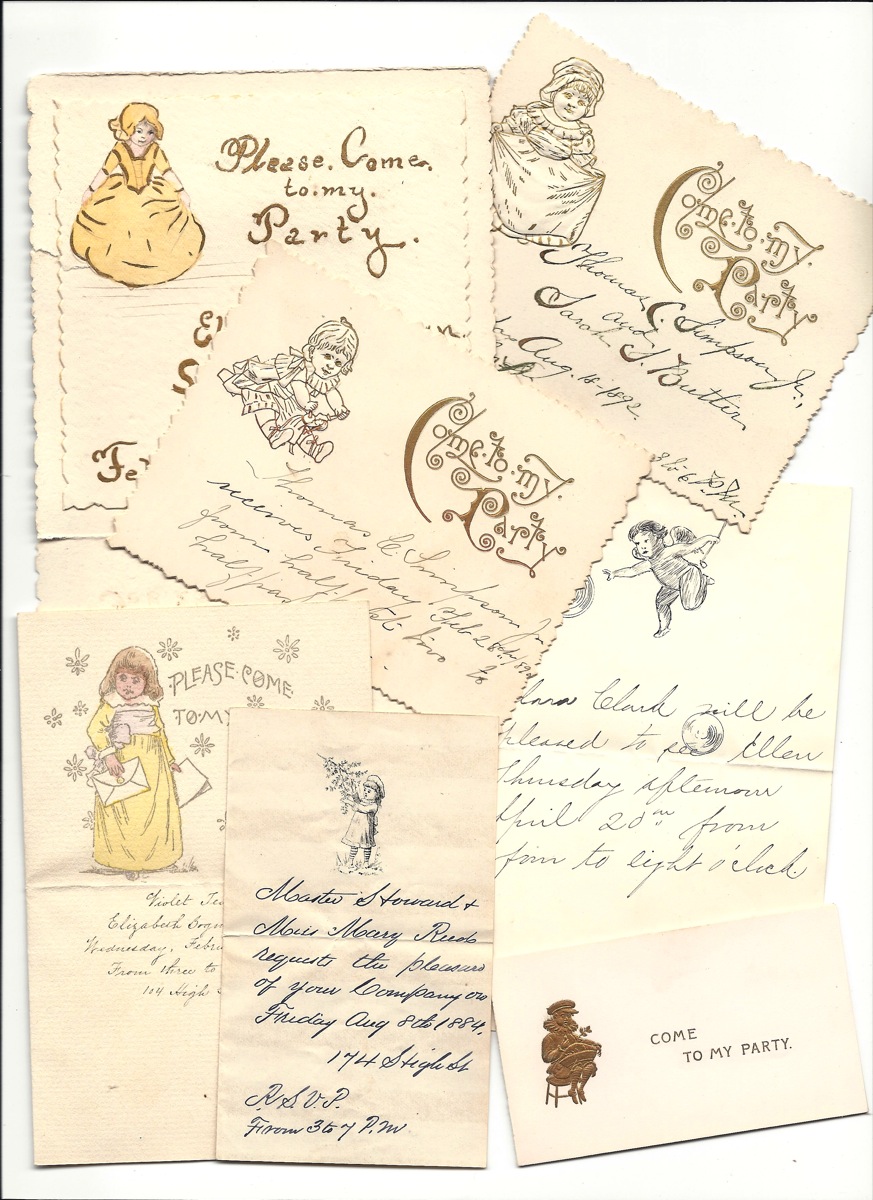 Please. Come.
to. my.
Party.
Fe
Come. to. my.
Party
Thomas C. Simpson Jr.,
and
Sarah S. Butler
Aug. 18-1892.
3 to 6 P.M.
Come. to. my.
Party
Thomas C Simpson Jr
receives Friday Feb 26th
from half
half pas
to
PLEASE COME
TO MY
Violet
Elizabeth
Wednesday, Febru
From three to
104 High S
Clark will be
pleased to see Ellen
Thursday afternoon
April 20th from
to eight o'clock.
Master Howard &
Miss Mary Reed
requests the pleasure
of your Company on
Friday Aug 8th 1884.
174 High St
R.S.V.P.
From 3 to 7 P.M.
COME
TO MY PARTY.